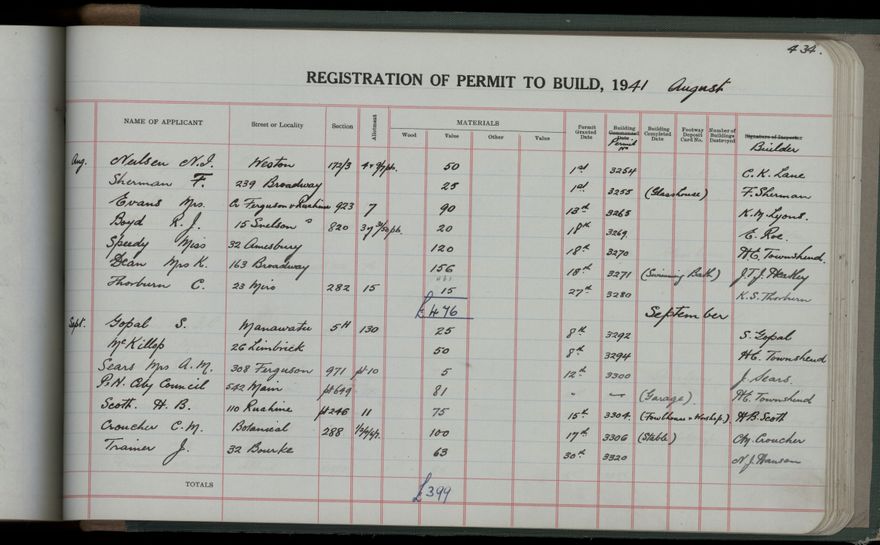 434.
REGISTRATION OF PERMIT TO BUILD, 1941 August
NAME OF APPLICANT Street or Locality Section Allotment MATERIALS Wood Value Other Value Permit Granted Date Building Commenced Date Permit No Building Completed Date Footway Deposit Card No. Number of Buildings Destroyed Signature of Inspector Builder
Aug. Neilsen N.J. Weston 172/3 50 1st 3254 C. K. Lane
Sherman F. 239 Broadway 25 1st 3255 (Glasshouse) F. Sherman
Evans Mrs. Cr Ferguson & Ruahine 923 7 90 13th 3265 K. M. Lyons.
Boyd R. J. 15 Snelson 820 20 18th 3269 E. Roe.
Speedy Miss 32 Amesbury 120 18th 3270 H.C. Townshend.
Dean Mrs K. 163 Broadway 156 18th 3271 (Swimming Bath)
Thorburn C. 23 Miro 282 15 15 27th 3280 K. S. Thorburn
£476 September
Sept. Gopal S. Manawatu 5H 130 25 8th 3292 S. Gopal
McKillop 26 Limbrick 50 8th 3294 H.C. Townshend
Sears Mrs A. M. 308 Ferguson 971 pt 10 5 12th 3300 J. Sears.
P.N. City Council 542 Main pt 649 81 " — (Garage) H.C. Townshend
Scott. H. B. 110 Ruahine pt 246 11 75 15th 3304. (Fowlhouse & Workshop.) H B. Scott
Croucher C. M. Botanical 288 100 17th 3306 (Stable) C M. Croucher
Trainer J. 32 Bourke 63 30th 3320 N. J. Hansen
TOTALS £399